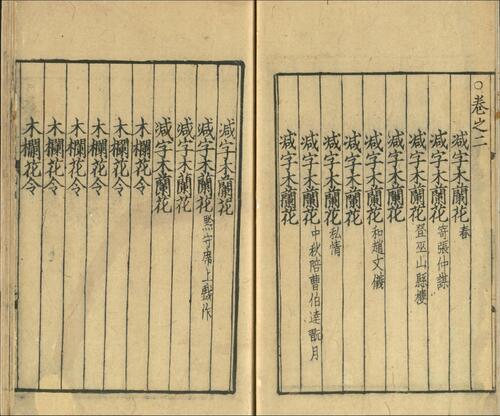 ○卷之二
减字木蘭花 春
减字木蘭花 寄張仲謀
减字木蘭花 登巫山縣樓
减字木蘭花
减字木蘭花 和趙文儀
减字木蘭花
减字木蘭花 私情
减字木蘭花 中秋陪曹伯達翫月
减字木蘭花
减字木蘭花 黔守席上戲作
减字木蘭花
减字木蘭花
木欄花令
木欄花令
木欄花令
木欄花令
木欄花令
木欄花令